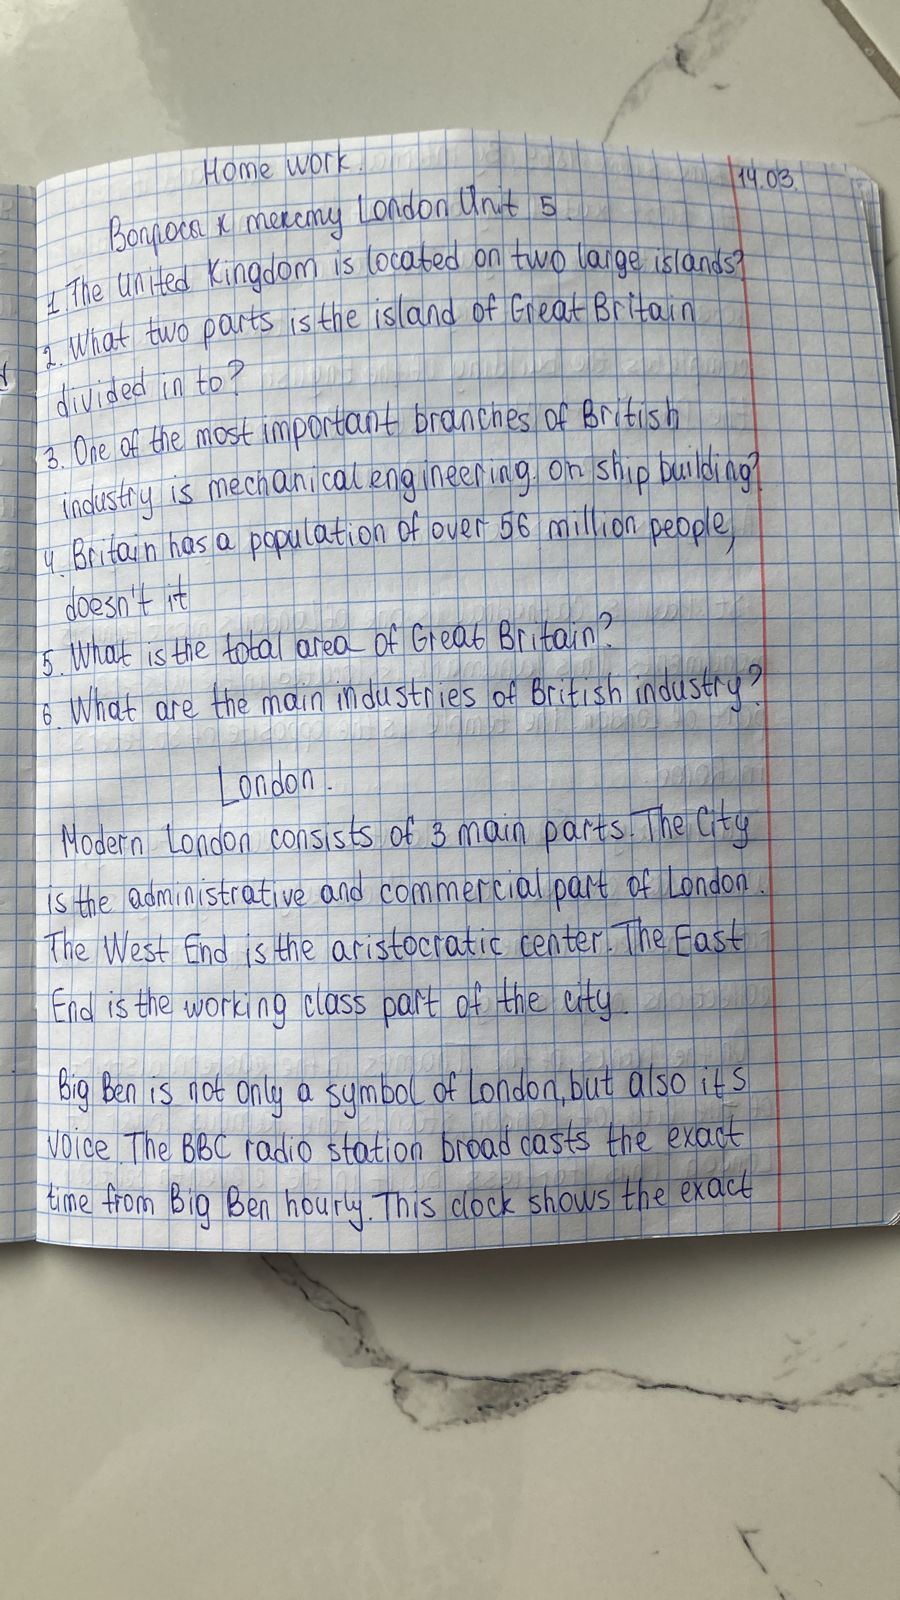 Home work.
14.03.
Вопросы к тексту London Unit 5
1. The United Kingdom is located on two large islands?
2. What two parts is the island of Great Britain
divided in to?
3. One of the most important branches of British
industry is mechanical engineering. on ship building?
4. Britain has a population of over 56 million people,
doesn't it
5. What is the total area of Great Britain?
6. What are the main industries of British industry?
London.
Modern London consists of 3 main parts. The City
is the administrative and commercial part of London.
The West End is the aristocratic center. The East
End is the working class part of the city.
Big Ben is not only a symbol of London, but also its
voice. The BBC radio station broad casts the exact
time from Big Ben hourly. This clock shows the exact